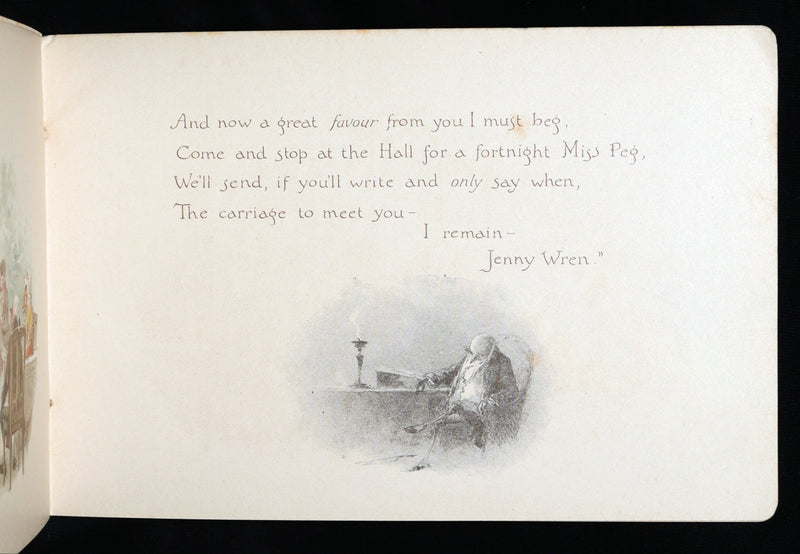 And now a great favour from you I must beg,
Come and stop at the Hall for a fortnight Miss Peg,
We'll send, if you'll write and only say when,
The carriage to meet you –
I remain –
Jenny Wren."